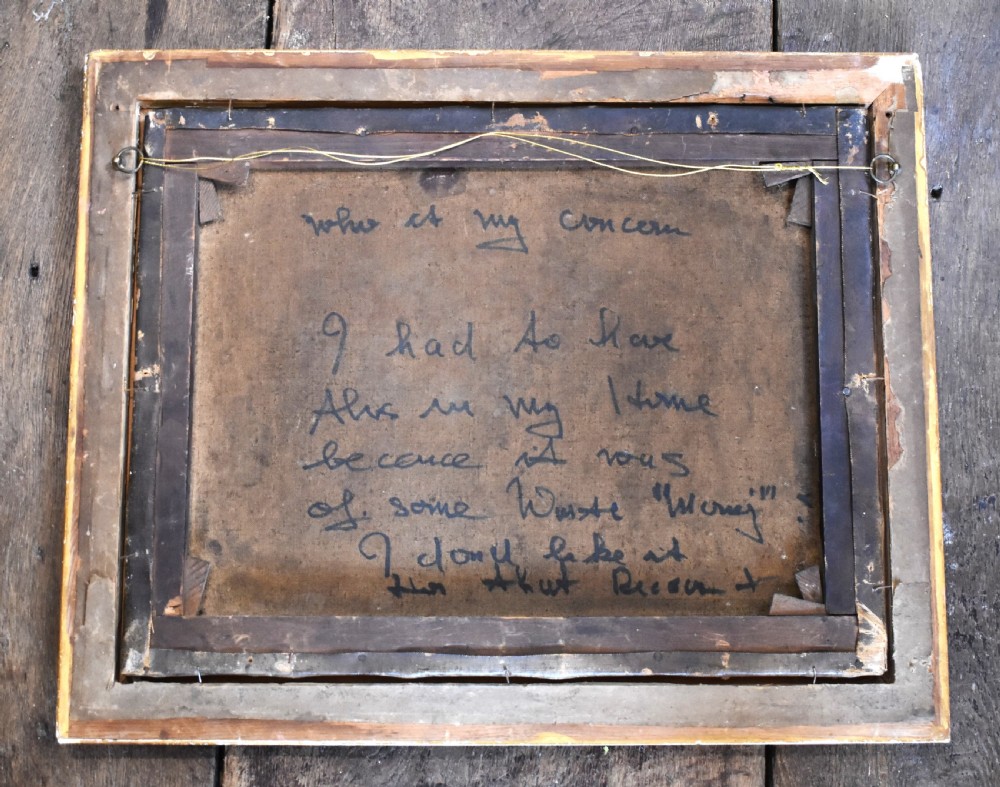 who it my concern
I had to have
this in my Home
becauce it was
of some Worste "Money" !
I don't like it
for that Reason